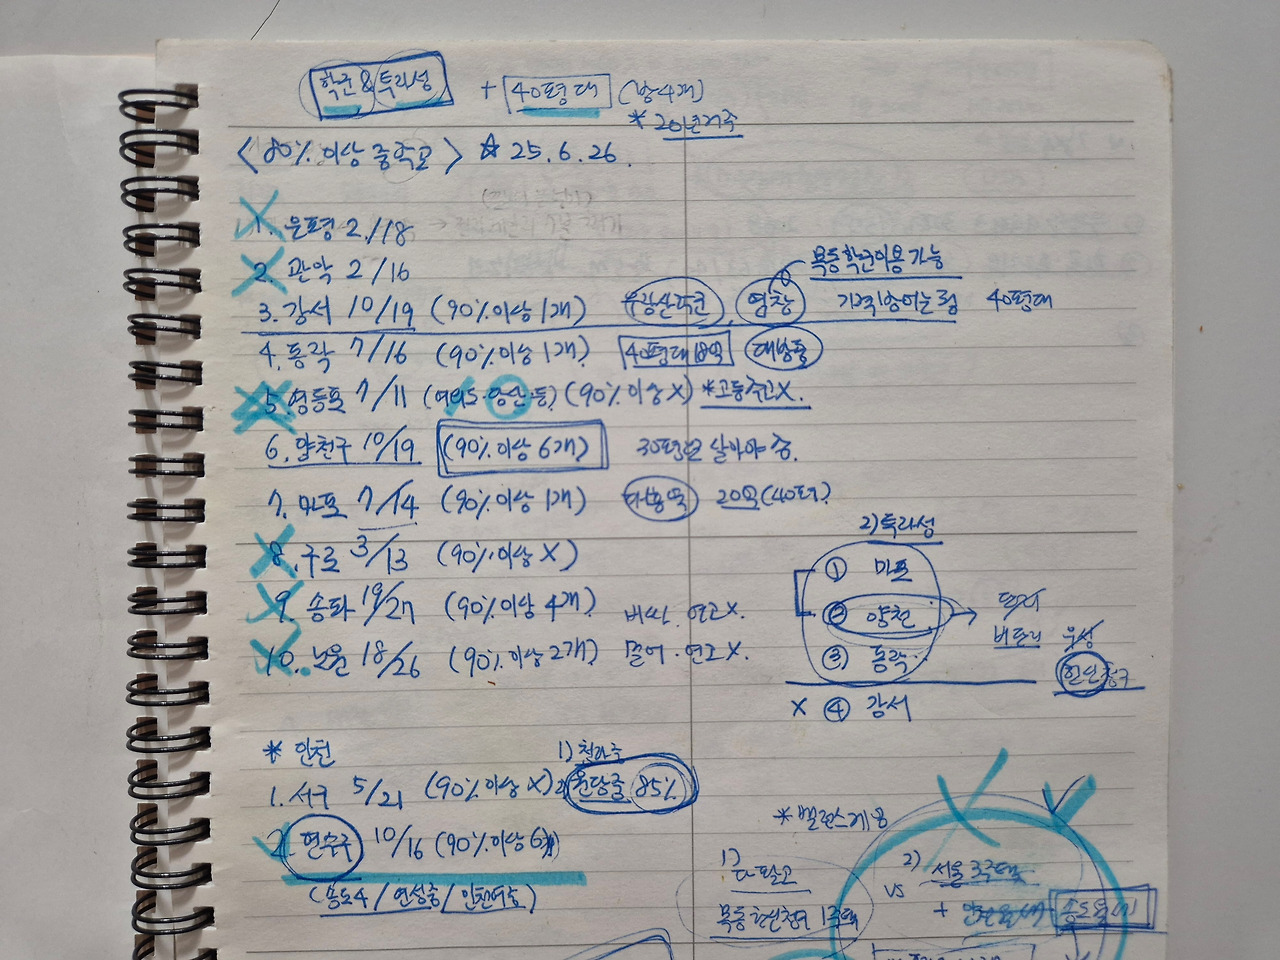 학군 & 특라성 + 40평대 (방4개)
* 20년거주
<80% 이상 중학교> ☆ 25.6.26.
1. 은평 2/18
2. 관악 2/16
목동학군이용가능
3. 강서 10/19 (90%이상 1개) 우장산학군, 염창 40평대
4. 동작 7/16 (90%이상 1개) 40평대 18억 대방동
5. 영등포 7/11 (여의도·당산·등) (90%이상 X) *고등학교X.
6. 양천구 10/19 (90%이상 6개) 30평면 살아야 함.
7. 마포 7/14 (90%이상 1개) 20억(40평)
8. 구로 3/13 (90%이상 X)
9. 송파 19/27 (90%이상 4개) 비싸. 연고X.
10. 노원 18/26 (90%이상 2개) 멀어. 연고X.
2) 특라성
① 마포
② 양천
③ 동작
X ④ 강서
* 인천
1. 서구 5/21 (90%이상 X) 1) 청라중
2) 원당중 85%
2. 연수구 10/16 (90%이상 6개)
(송도4 / 연성중 / 인천여중)
* 밸런스게임
1) 다팔고
목동 1주택
vs
2) 서울 3주택
+ 송도월세